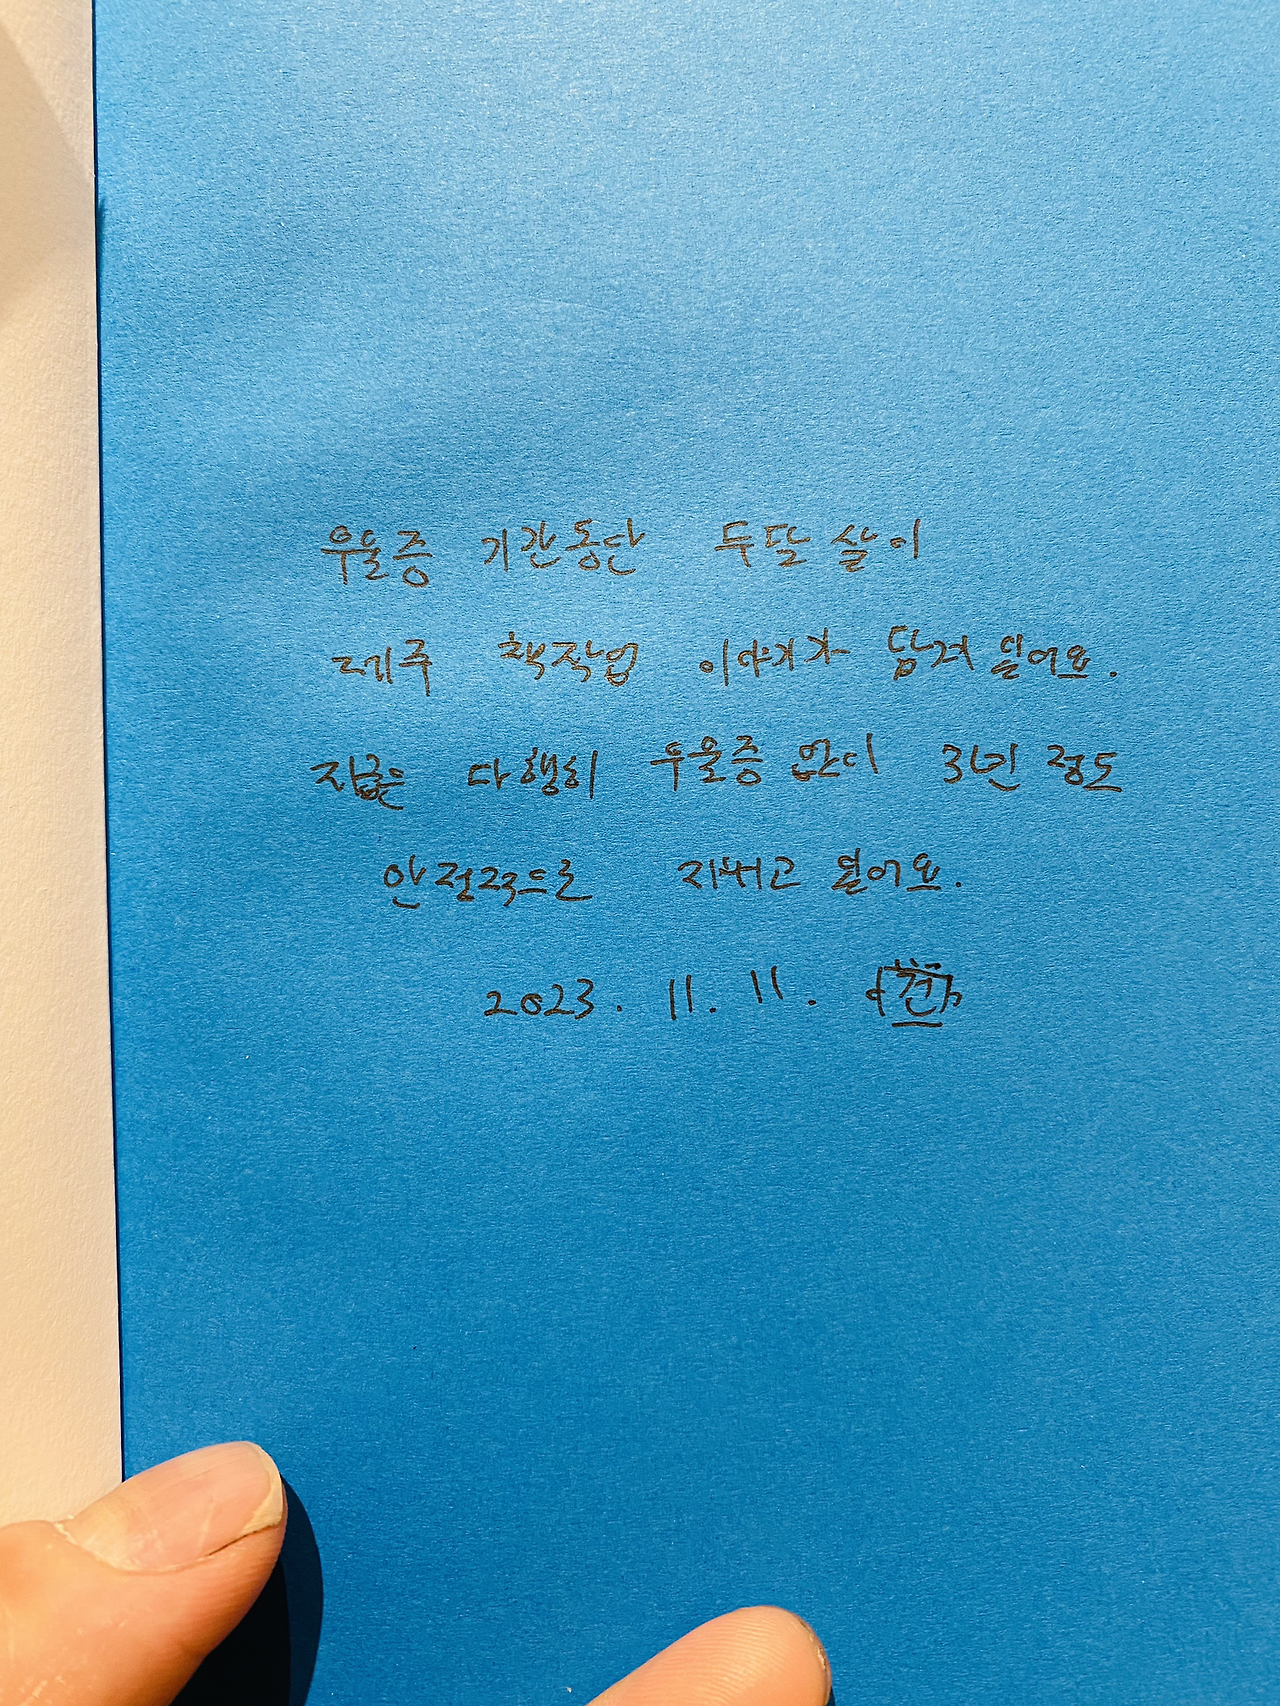 우울증 기간동안 두달 살이
제주 책작업 이야기가 담겨 있어요.
지금은 다행히 우울증 없이 3년 정도
안정적으로 지내고 있어요.
2023. 11. 11.